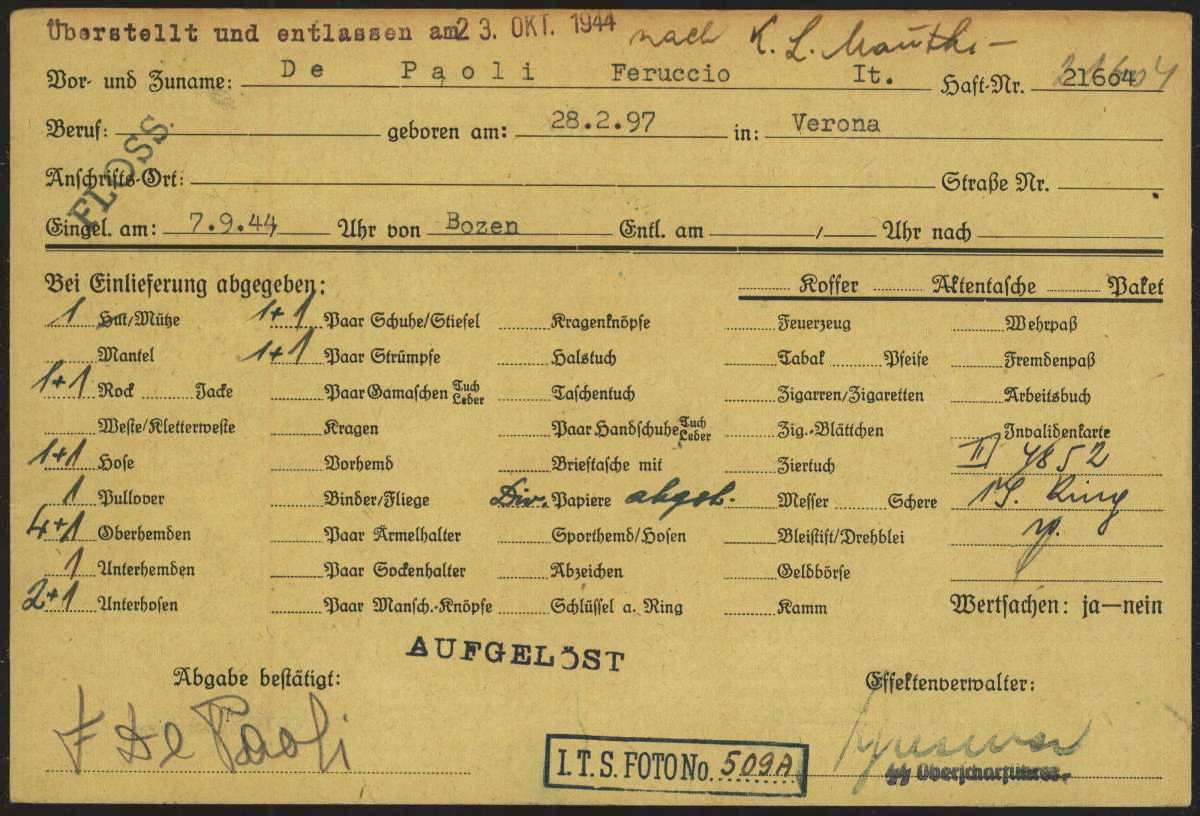 Überstellt und entlassen am 23. OKT. 1944 nach K. L. Mauth.-
Vor- und Zuname: De Paoli Feruccio It. Haft-Nr. 21604
Beruf: geboren am: 28.2.97 in: Verona
FLOSS.
Anschrifts-Ort: Straße Nr.
Eingel. am: 7.9.44 Uhr von Bozen Entl. am / Uhr nach
Bei Einlieferung abgegeben: Koffer Aktentasche Paket
1 Hut/Mütze 1+1 Paar Schuhe/Stiefel Kragenknöpfe Feuerzeug Wehrpaß
Mantel 1+1 Paar Strümpfe Halstuch Tabak Pfeife Fremdenpaß
1+1 Rock Jacke Paar Gamaschen Tuch Leder Taschentuch Zigarren/Zigaretten Arbeitsbuch
Weste/Kletterweste Kragen Paar Handschuhe Tuch Leder Zig.-Blättchen Invalidenkarte
1+1 Hose Vorhemd Brieftasche mit Ziertuch II 4852
1 Pullover Binder/Fliege Div. Papiere abgel. Messer Schere Ring
4+1 Oberhemden Paar Ärmelhalter Sporthemd/Hosen Bleistift/Drehblei
1 Unterhemden Paar Sockenhalter Abzeichen Geldbörse
2+1 Unterhosen Paar Mansch.-Knöpfe Schlüssel a. Ring Kamm Wertsachen: ja—nein
AUFGELÖST
Abgabe bestätigt: Effektenverwalter:
F De Paoli
I.T.S. FOTO No. 509A
SS Oberscharführer